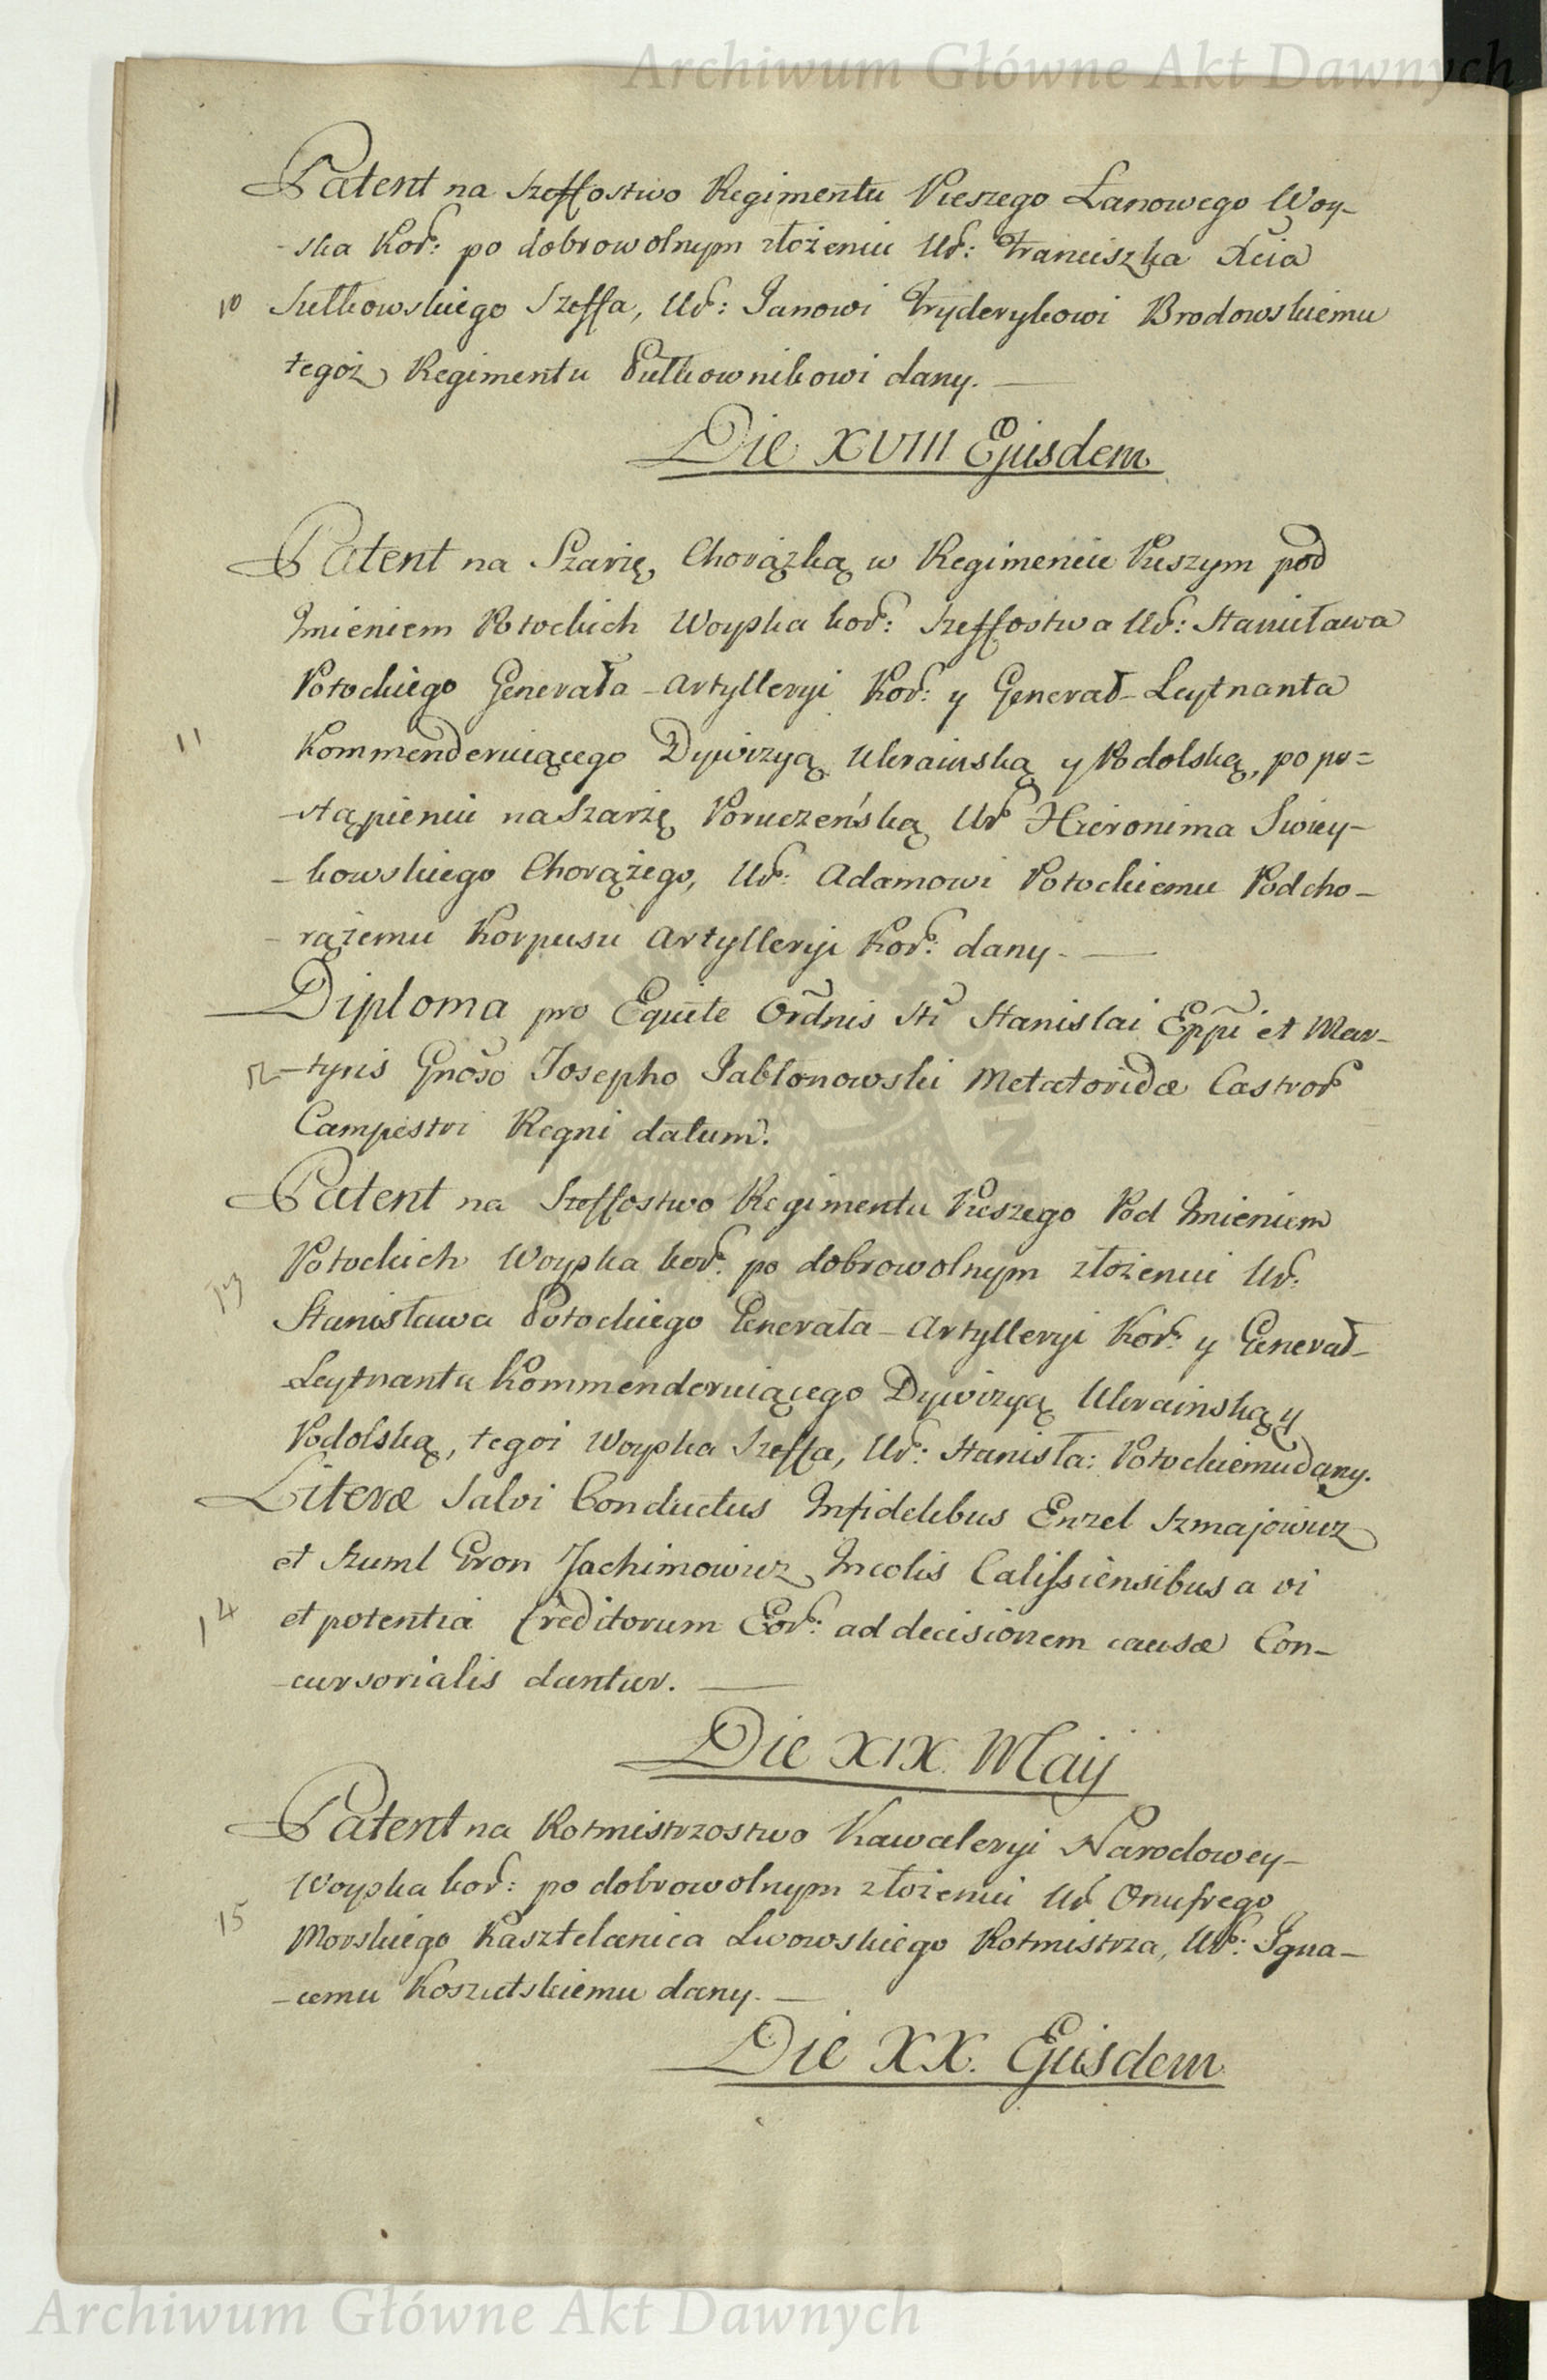 Archiwum Główne Akt Dawnych
Patent na Szeffostwo Regimentu Pieszego Łanowego Woy-
-ska Kor: po dobrowolnym złożeniu Ur: Franciszka Xcia
10 Sułkowskiego Szeffa, Ur: Janowi Fryderykowi Brodowskiemu
tegoż Regimentu Pułkownikowi dany.
Die XVIII Ejusdem
Patent na Szarżę Chorązką w Regimencie Pieszym pod
Imieniem Potockich Woyska kor: Szeffostwa Ur: Stanisława
Potockiego Generała-Artylleryi Kor: y Generał-Leytnanta
11 Kommenderuiącego Dywizyą Ukrainską y Podolską, po po=
-stąpieniu na Szarżę Poruczeńską Ur Hieronima Swiey-
-kowskiego Chorążego, Ur: Adamowi Potockiemu Podcho-
-rążemu Korpusu Artylleryi Kor: dany.
Diploma pro Equite Ordnis Sti Stanislai Eppi et Mar-
12 -tyris Gnoso Josepho Jabłonowski Metatoridæ Castror
Campestri Regni datum.
Patent na Szeffostwo Regimentu Pieszego Pod Imieniem
13 Potockich Woyska kor: po dobrowolnym złożeniu Ur:
Stanisława Potockiego Generała-Artylleryi Kor: y Generał-
Leytnanta Kommenderuiącego Dywizyą Ukrainską y
Podolską, tegoż Woyska Szeffa, Ur: Stanisła: Potockiemu dany.
Literæ Salvi Conductus Infidelibus Enzel Szmajowicz
et Szuml Jachimowicz Incolis Calissiensibus a vi
14 et potentia Creditorum Eor: ad decisionem causæ Con-
-cursorialis dantur.
Die XIX Maij
Patent na Rotmistrzostwo Kawaleryi Narodowey
Woyska kor: po dobrowolnym złożeniu Ur Onufrego
15 Morskiego Kasztelanica Lwowskiego Rotmistrza, Ur: Igna-
-cemu Koszutskiemu dany.
Die XX. Ejusdem
Archiwum Główne Akt Dawnych